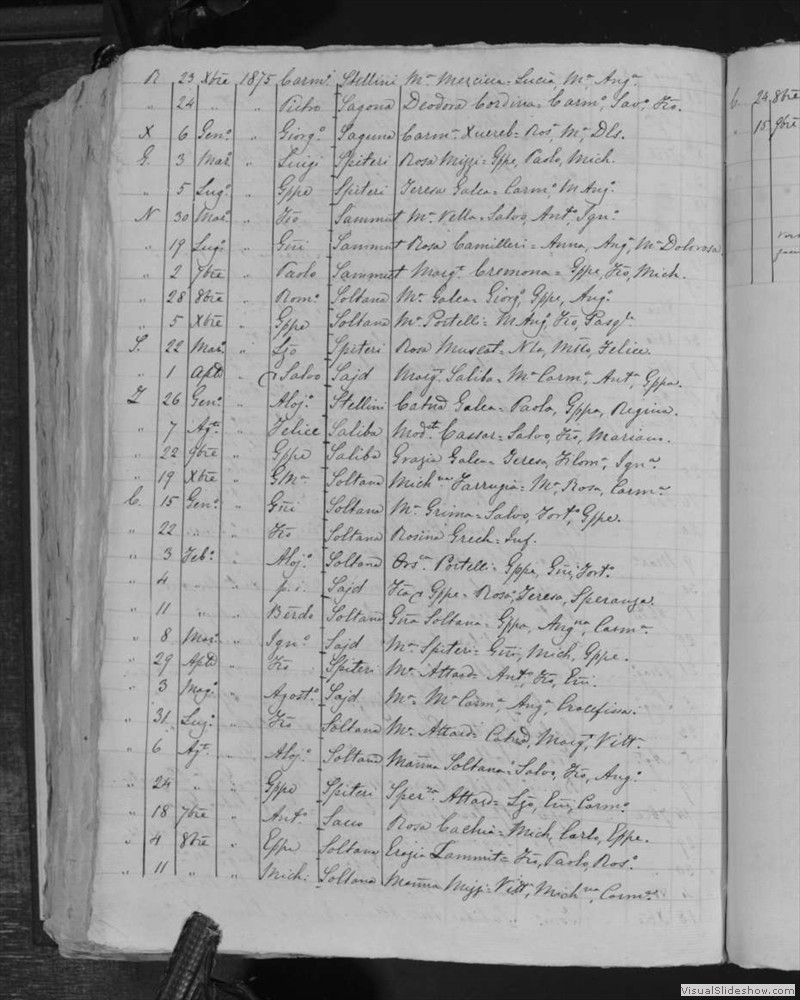 R 23 Xbre 1875 Carmo Stellini Ma Mercieca = Lucia, Ma, Anga
" 24 " " Pietro Sagona Deodora Cordina = Carmo, Savo, Fco.
X 6 Geno " Giorgo Saguna Carma Xuereb = Rosa, Ma, Dls.
G. 3 Mar. " Luigi Spiteri Rosa Mizzi = Gppe, Paolo, Mich.
" 5 Lugo " Gppe Spiteri Teresa Galea = Carmo M Ango
N 30 Mar. " Fco Sammut Ma Vella = Salvo, Anto, Igno
" 19 Lugo " Gni Sammut Rosa Camilleri = Anna, Anga, Ma Dolorosa
" 2 7bre " Paolo Sammut Margta Cremona = Gppe, Fco, Mich.
" 28 8bre " Romo Soltana Ma Galea = Giorgo Gppe, Ango
" 5 Xbre " Gppe Soltana Ma Portelli = M Ango Fco, Pasqle
S. 22 Mar. " Spiteri Rosa Muscat = Felice.
" 1 Aple " Salvo Sajd Margta Saliba = Ma Carma, Anta, Gppa.
Z 26 Geno " Alojo Stellini Catrd Galea = Paolo, Gppa, Regina.
" 7 Agto " Felice Saliba Modta Cassar = Salvo, Fco, Mariano.
" 22 9bre " Gppe Saliba Grazia Galea = Teresa, Filoma, Igna
" 19 Xbre " GMa Soltana Michna Farrugia = Ma, Rosa, Carma
C. 15 Geno " Gni Soltana Ma Grima = Salvo, Forto, Gppe.
" 22 " " Fco Soltana Rosina Grech = Inf.
" 3 Febo " Alojo Soltana Orsa Portelli = Gppa, Gni, Forto
" 4 " " p. i. Sajd Gppe = Rosa, Teresa, Speranza.
" 11 " " Berdo Soltana Gna Soltana = Gppa, Angna, Carma
" 8 Mar. " Igno Sajd Ma Spiteri = Gni, Mich, Gppe.
" 29 Aple " Fco Spiteri Ma Attard = Anto, Fco, Em.
" 3 Mago " Agosto Sajd Ma Ma Carma, Anga Crocefissa.
" 31 Lugo " Fco Soltana Ma Attard = Catrd, Margta, Vitta
" 6 Agto " Alojo Soltana Marna Soltana = Salvo, Fco, Ango
" 24 " " Gppe Spiteri Sperza Attard = Em, Carmo
" 18 7bre " Anto Sacco Rosa Cachia = Mich, Carlo, Gppe.
" 4 8bre " Gppe Soltana Sammut = Fco, Paolo, Roso
" 11 " " Mich: Soltana Marna Mizzi = Vitta, Michna, Carmo
C. 24 8bre
" 15 9bre
VisualSlideshow.com